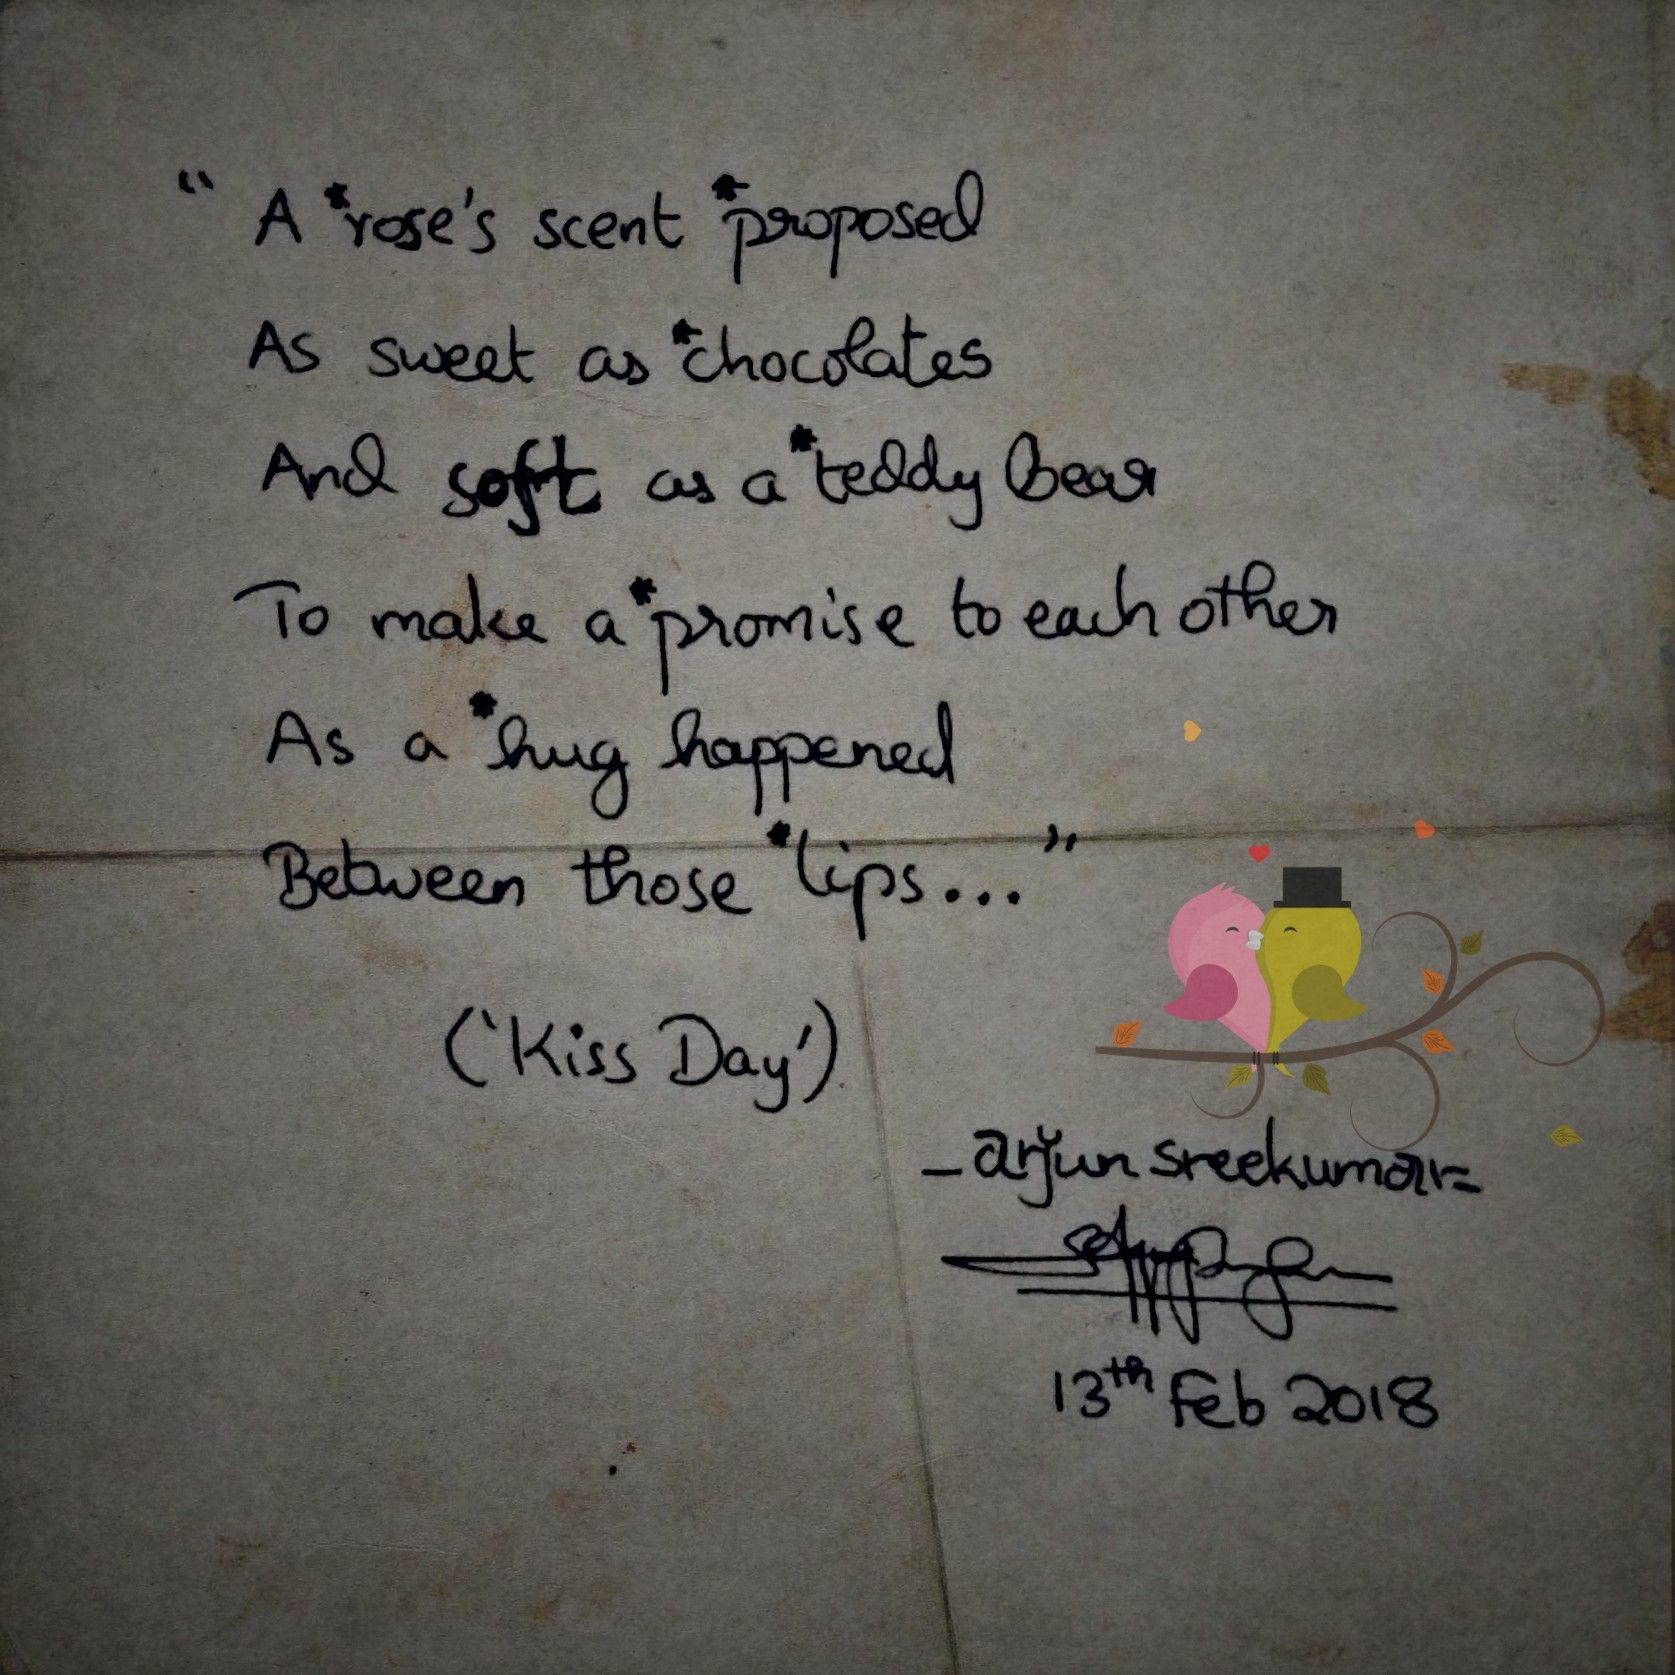 “ A *rose's scent *proposed
As sweet as *chocolates
And soft as a *teddy bear
To make a *promise to each other
As a *hug happened
Between those *lips...”
('Kiss Day')
- arjun sreekumar=
13th Feb 2018